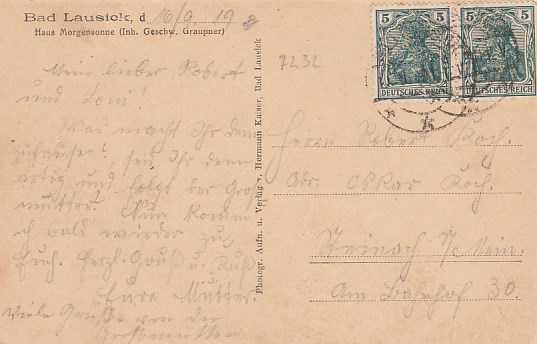 Bad Lausick, d 16/9. 19
Haus Morgensonne (Inh. Geschw. Graupner)
7232
Mein lieber Robert
und Toni!
Was macht Ihr denn
zuhause? Seid Ihr denn
artig und folgt der Groß
mutter. Nun komm
ich bald wieder zu
Euch. Herzl. Gruß u. Kuß
Eure Mutter.
Viele Grüße von der
Großmutter
Photogr. Aufn. u. Verlag v. Hermann Kaiser, Bad Lausick
5 5
DEUTSCHES REICH
5 5
DEUTSCHES REICH
Herrn Robert Koch.
Adr. Oskar Koch.
Main.
Am Bahnhof 30.